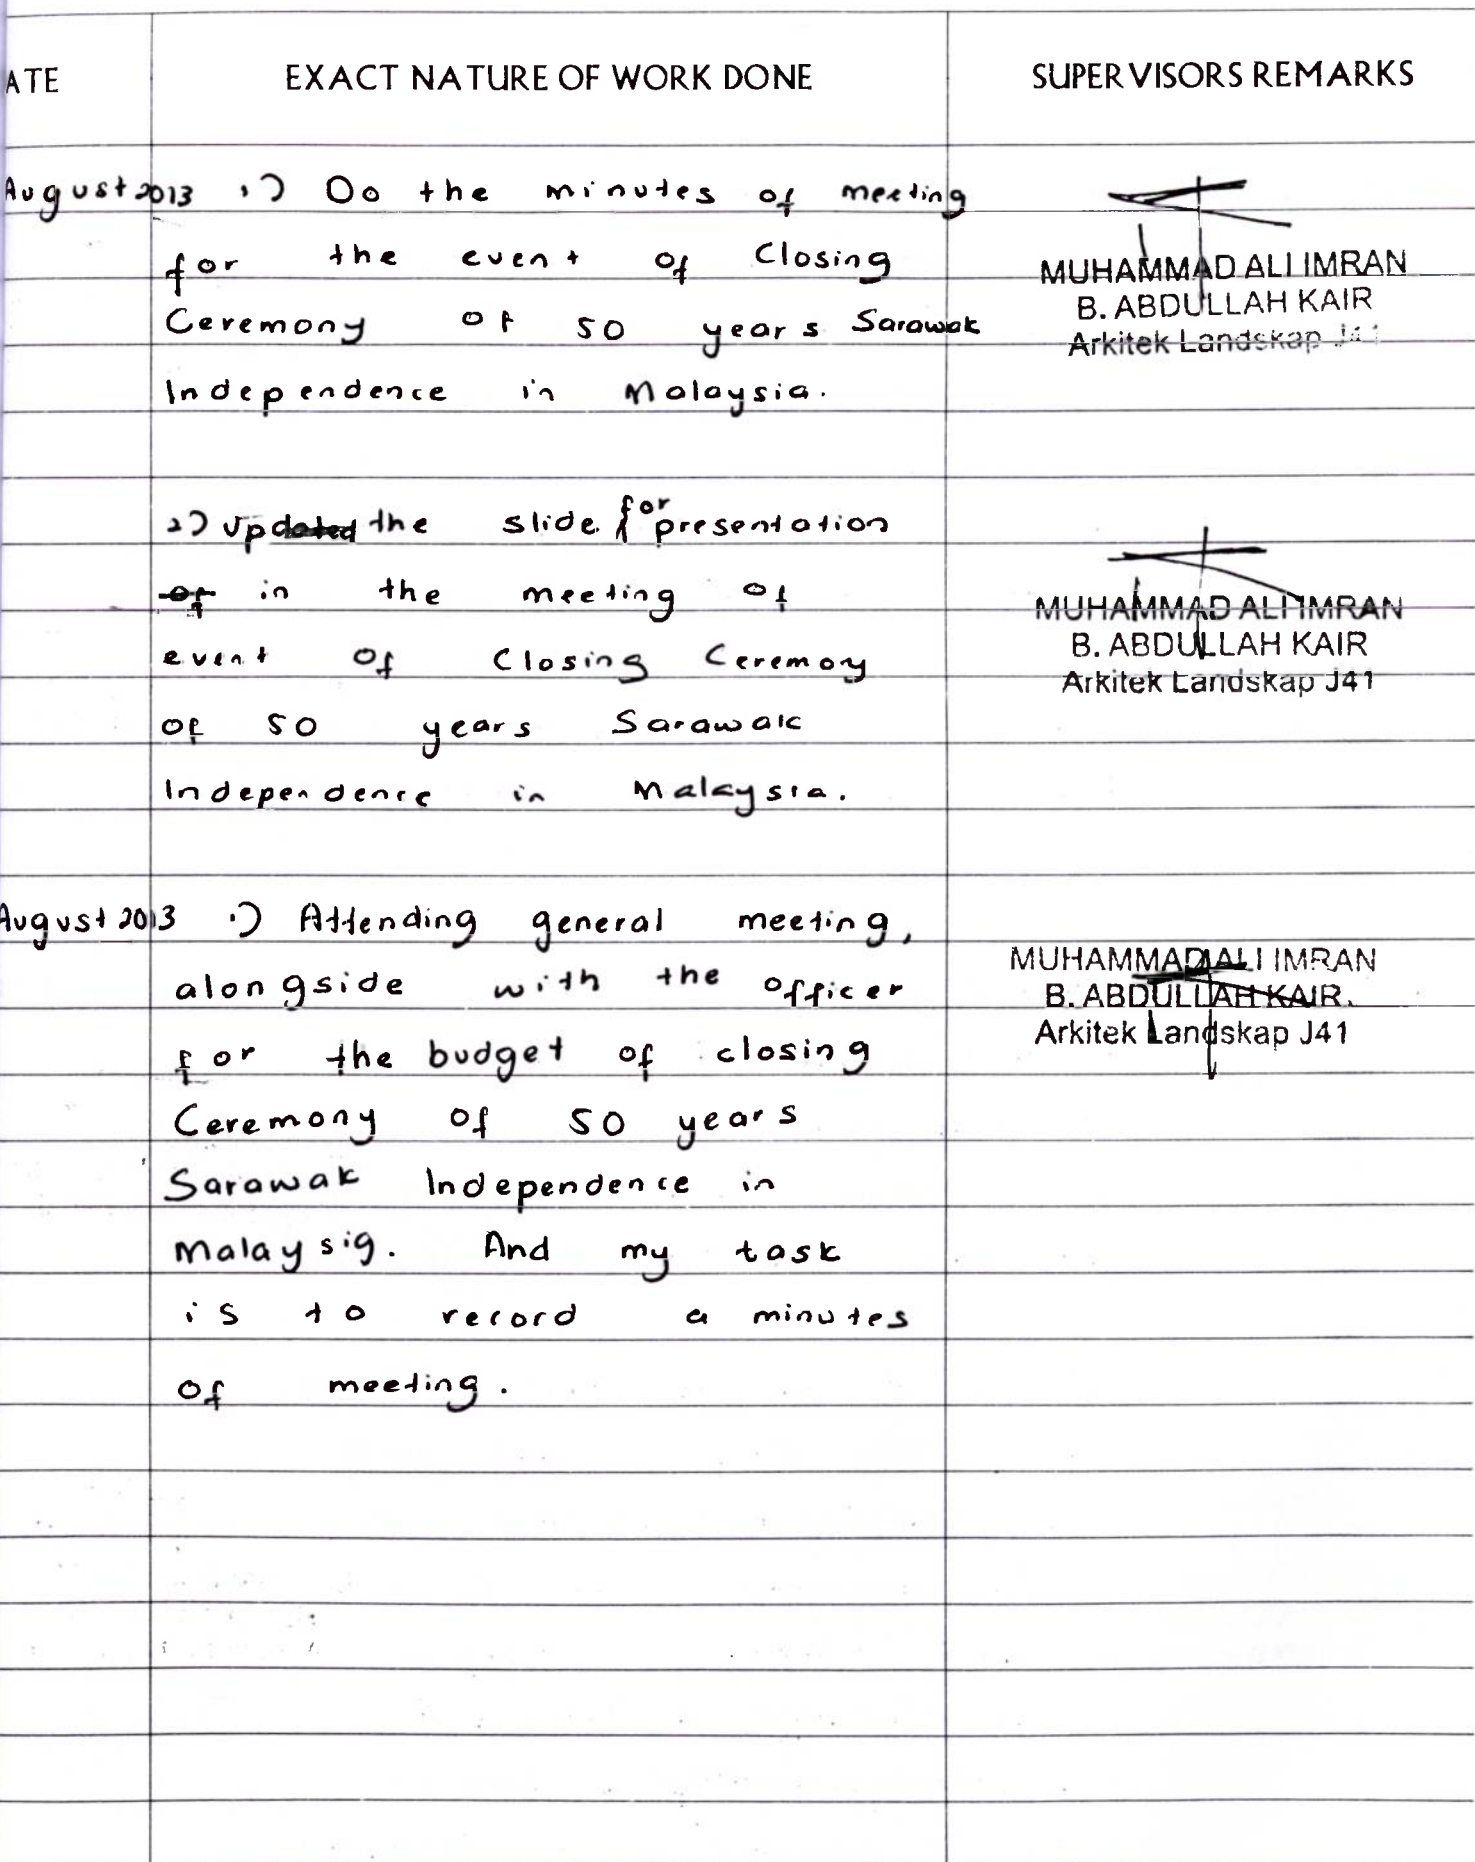 ATE EXACT NATURE OF WORK DONE SUPERVISORS REMARKS
August 2013 1) Do the minutes of meeting
for the event of Closing
Ceremony of 50 years Sarawak
Independence in Malaysia.
MUHAMMAD ALI IMRAN
B. ABDULLAH KAIR
Arkitek Landskap J41
2) Updated the slide for presentation
of in the meeting of
event of Closing Ceremony
of 50 years Sarawak
Independence in Malaysia.
MUHAMMAD ALI IMRAN
B. ABDULLAH KAIR
Arkitek Landskap J41
August 2013 1) Attending general meeting,
alongside with the officer
for the budget of closing
Ceremony of 50 years
Sarawak Independence in
Malaysia. And my task
is to record a minutes
of meeting.
MUHAMMAD ALI IMRAN
B. ABDULLAH KAIR.
Arkitek Landskap J41